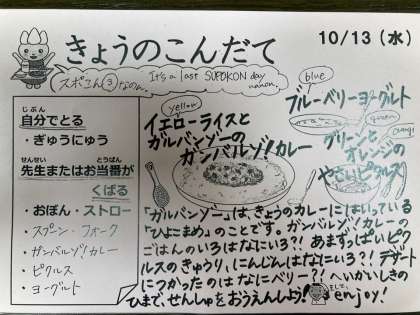 きょうのこんだて
10/13（水）
スポこん③なのん。
It's a last SUPOKON day nanon.
じぶん
自分でとる
・ぎゅうにゅう
せんせい とうばん
先生またはお当番が
くばる
・おぼん・ストロー
・スプーン・フォーク
・ガンバルゾ!カレー
・ピクルス
・ヨーグルト
yellow
イエローライスと
ガルバンゾーの
ガンバルゾ!カレー
blue
ブルーベリーヨーグルト
green
orange
グリーンと
オレンジの
やさいピクルス
「ガルバンゾー」は、きょうのカレーにはいっている
「ひよこまめ」のことです。ガンバルゾ!カレーの
ごはんのいろはなにいろ?! あまずっぱいピク
ルスのきゅうり、にんじんはなにいろ?! デザート
につかったのはなにベリー?! へいかいしきの
ひまで、せんしゅをおうえんしよう!
そして、
enjoy!